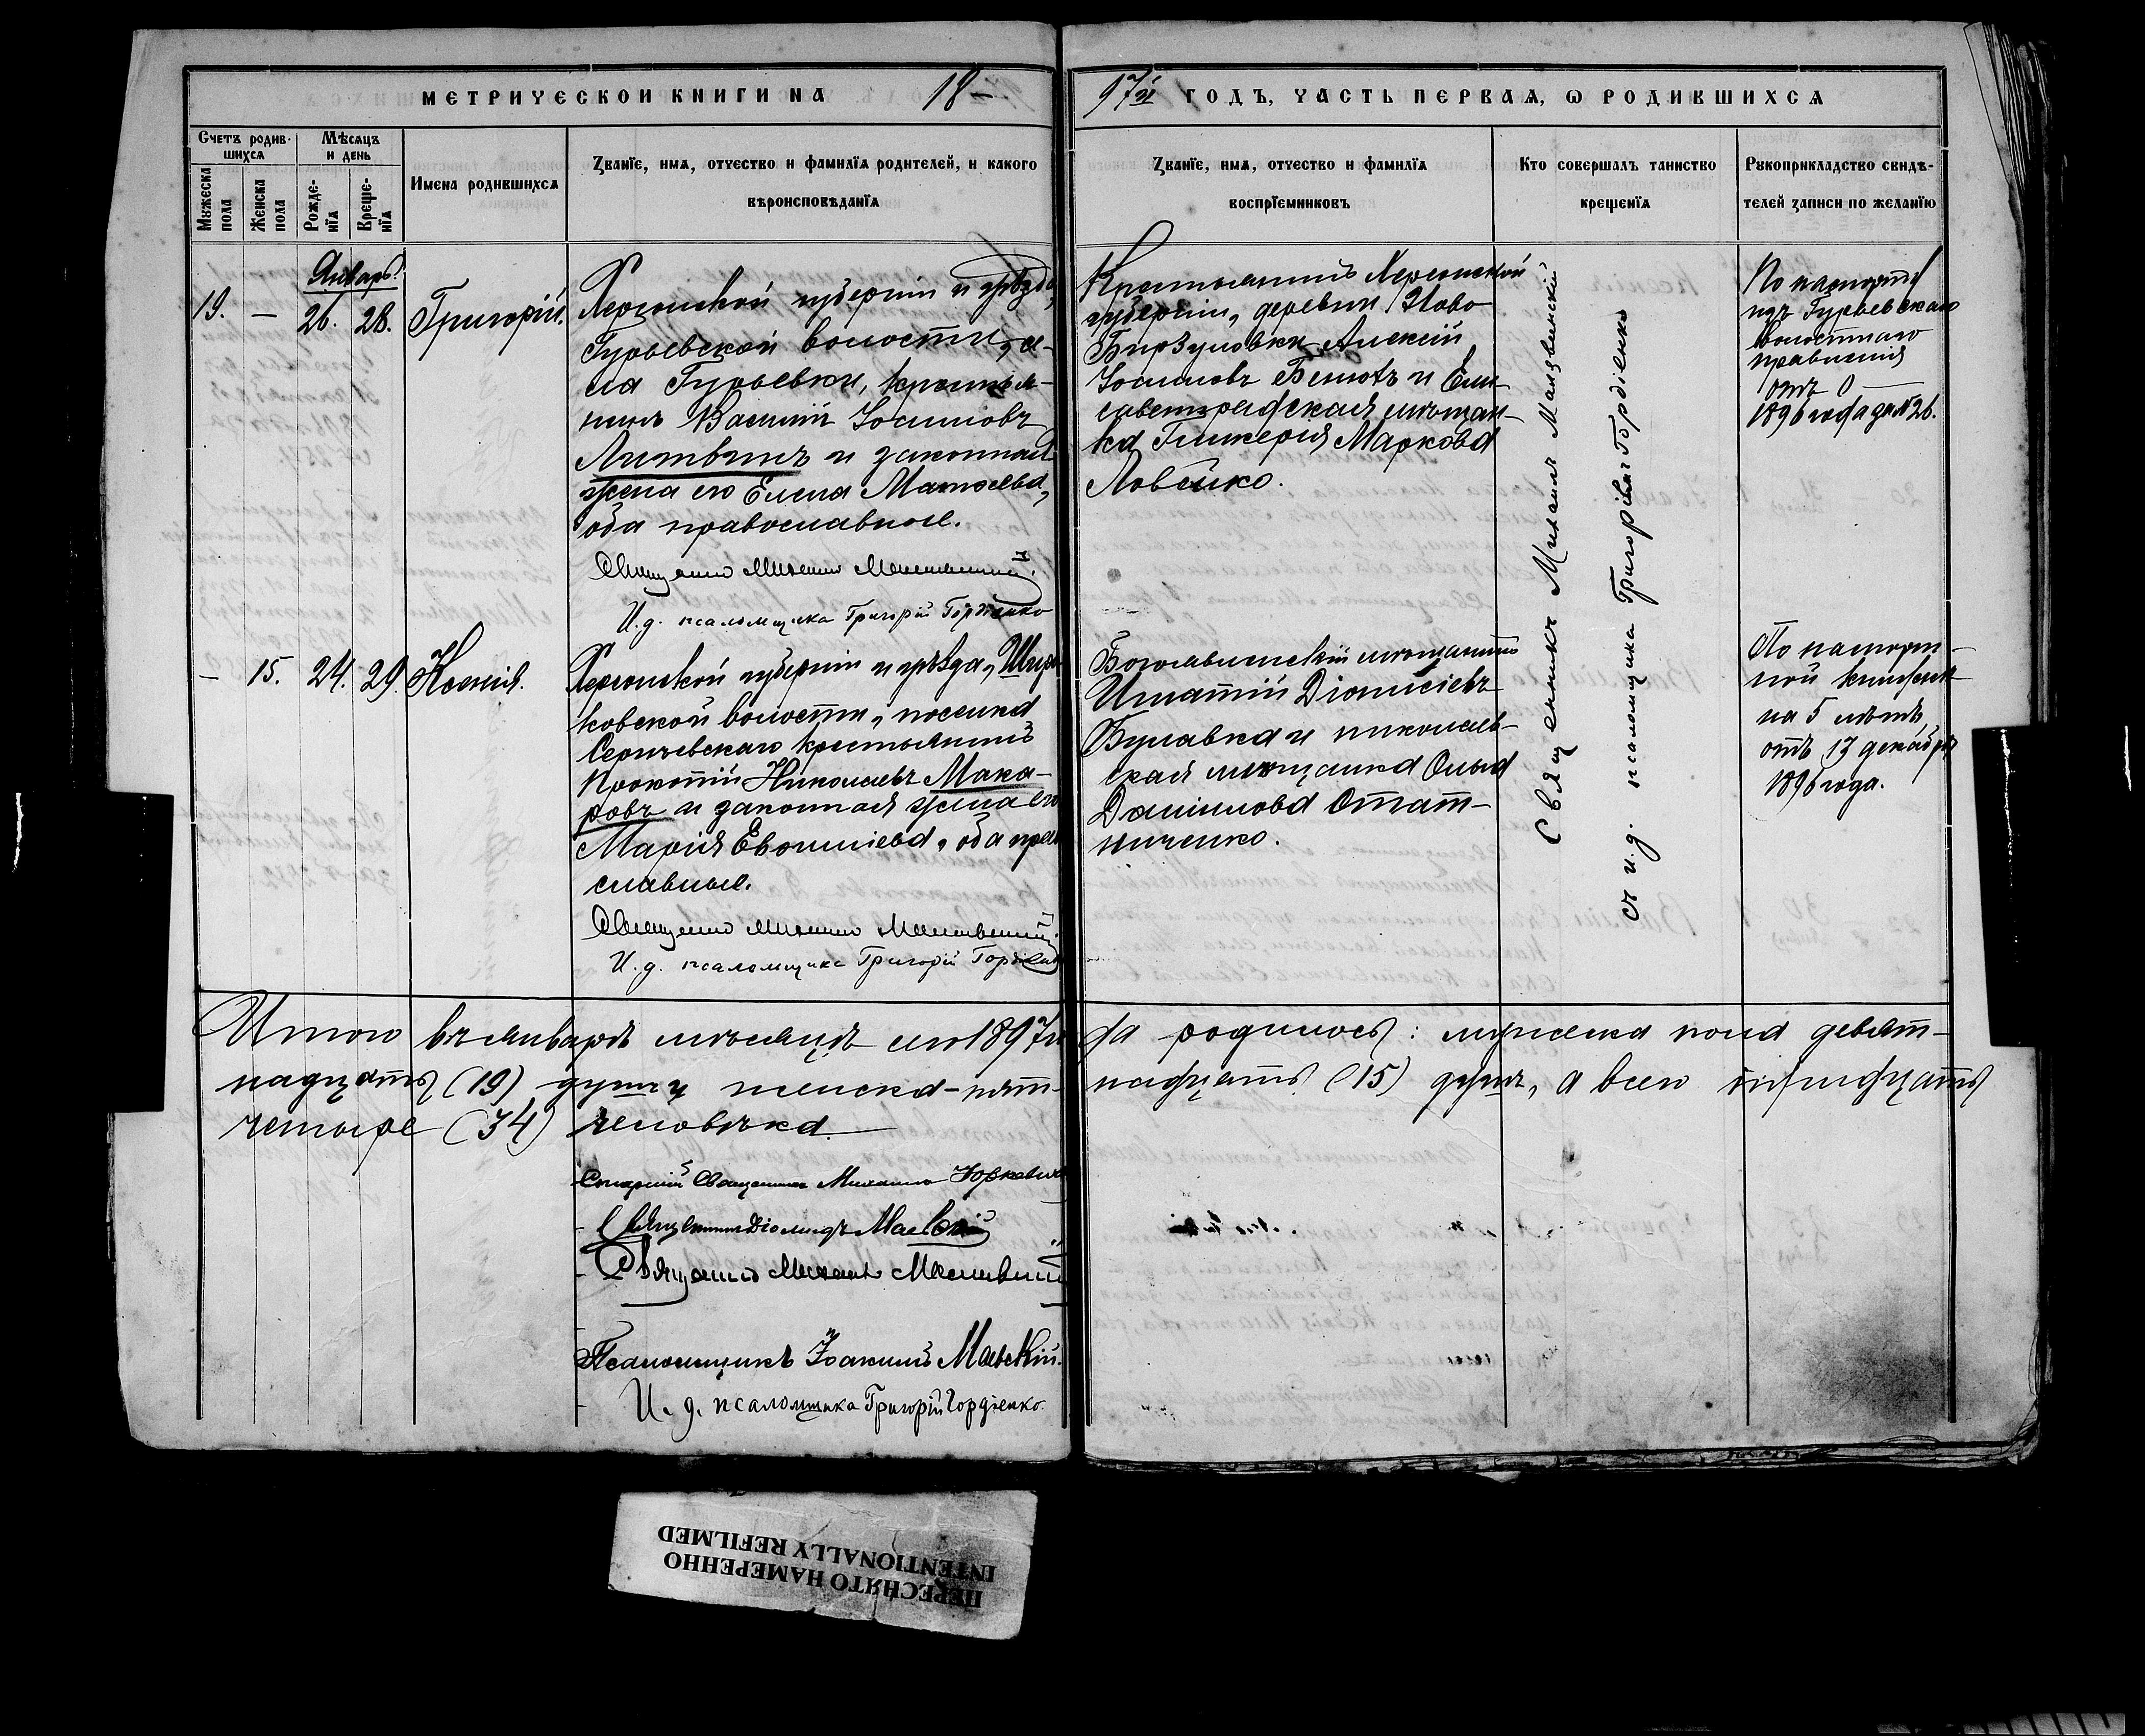 МЕТРИЧЕСКОЙ КНИГИ НА 18—
97й ГОДЪ, ЧАСТЬ ПЕРВАЯ, Ѡ РОДИВШИХСЯ
Счетъ родив-
шихся
Мѣсяцъ
и день
Мужеска
пола
Женска
пола
Рожде-
нїя
Креще-
нїя
Имена родившихся
Званїе, имя, отчество и фамилїя родителей, и какого
вѣроисповѣданїя
Званїе, имя, отчество и фамилїя
воспрїемниковъ
Кто совершалъ таинство
крещенїя
Рукоприкладство свидѣ-
телей записи по желанїю
Январь.
19. — 26. 28. Григорій.
Херсонской губерніи и уѣзда,
Гурьевской волости, се-
ла Гурьевки, крестья-
нинъ Василій Іоанновъ
Литвинъ и законная
жена его Елена Матѳеева,
оба православные.
Священникъ Михаилъ
И. д. псаломщика Григорій Гордіенко
Крестьянинъ Херсонской
губерніи, деревни Ново
Бирзуловки Алексій
Іоанновъ и Ели-
саветградская мѣщан-
ка Гликерія Маркова
Ловейко.
По паспорту
изъ Гурьевскаго
волостнаго
правленія
отъ 0 —
1896 года за №26.
Священникъ Михаилъ
съ и. д. псаломщика Григоріемъ Гордіенко
— 15. 24. 29. Ксенія.
Херсонской губерніи и уѣзда,
ковской волости, поселка
Сергѣевскаго крестьянинъ
Николаевъ Мака-
ровъ и законная жена его
Марія оба право-
славные.
Священникъ Михаилъ
И. д. псаломщика Григорій Гордіенко
мѣщанинъ
Игнатій Діонисіевъ
Булавка и николаев-
ская мѣщанка Ольга
Даніилова
ниченко.
По паспорт-
ной книжкѣ
на 5 лѣтъ,
отъ 13 декабря
1896 года.
Итого въ январѣ мѣсяцѣ сего 1897 го-
да родилось: мужеска пола девят-
надцать (19) душъ женска — пят-
надцать (15) душъ, а всего тридцать
четыре (34) человѣка.
Старшій Священникъ Михаилъ Юркевичъ
Священникъ Діомидъ Маевскій
Священникъ Михаилъ
Псаломщикъ Іоакимъ Маевскій.
И. д. псаломщика Григорій Гордіенко.
ПЕРЕСНЯТО НАМЕРЕННО
INTENTIONALLY REFILMED